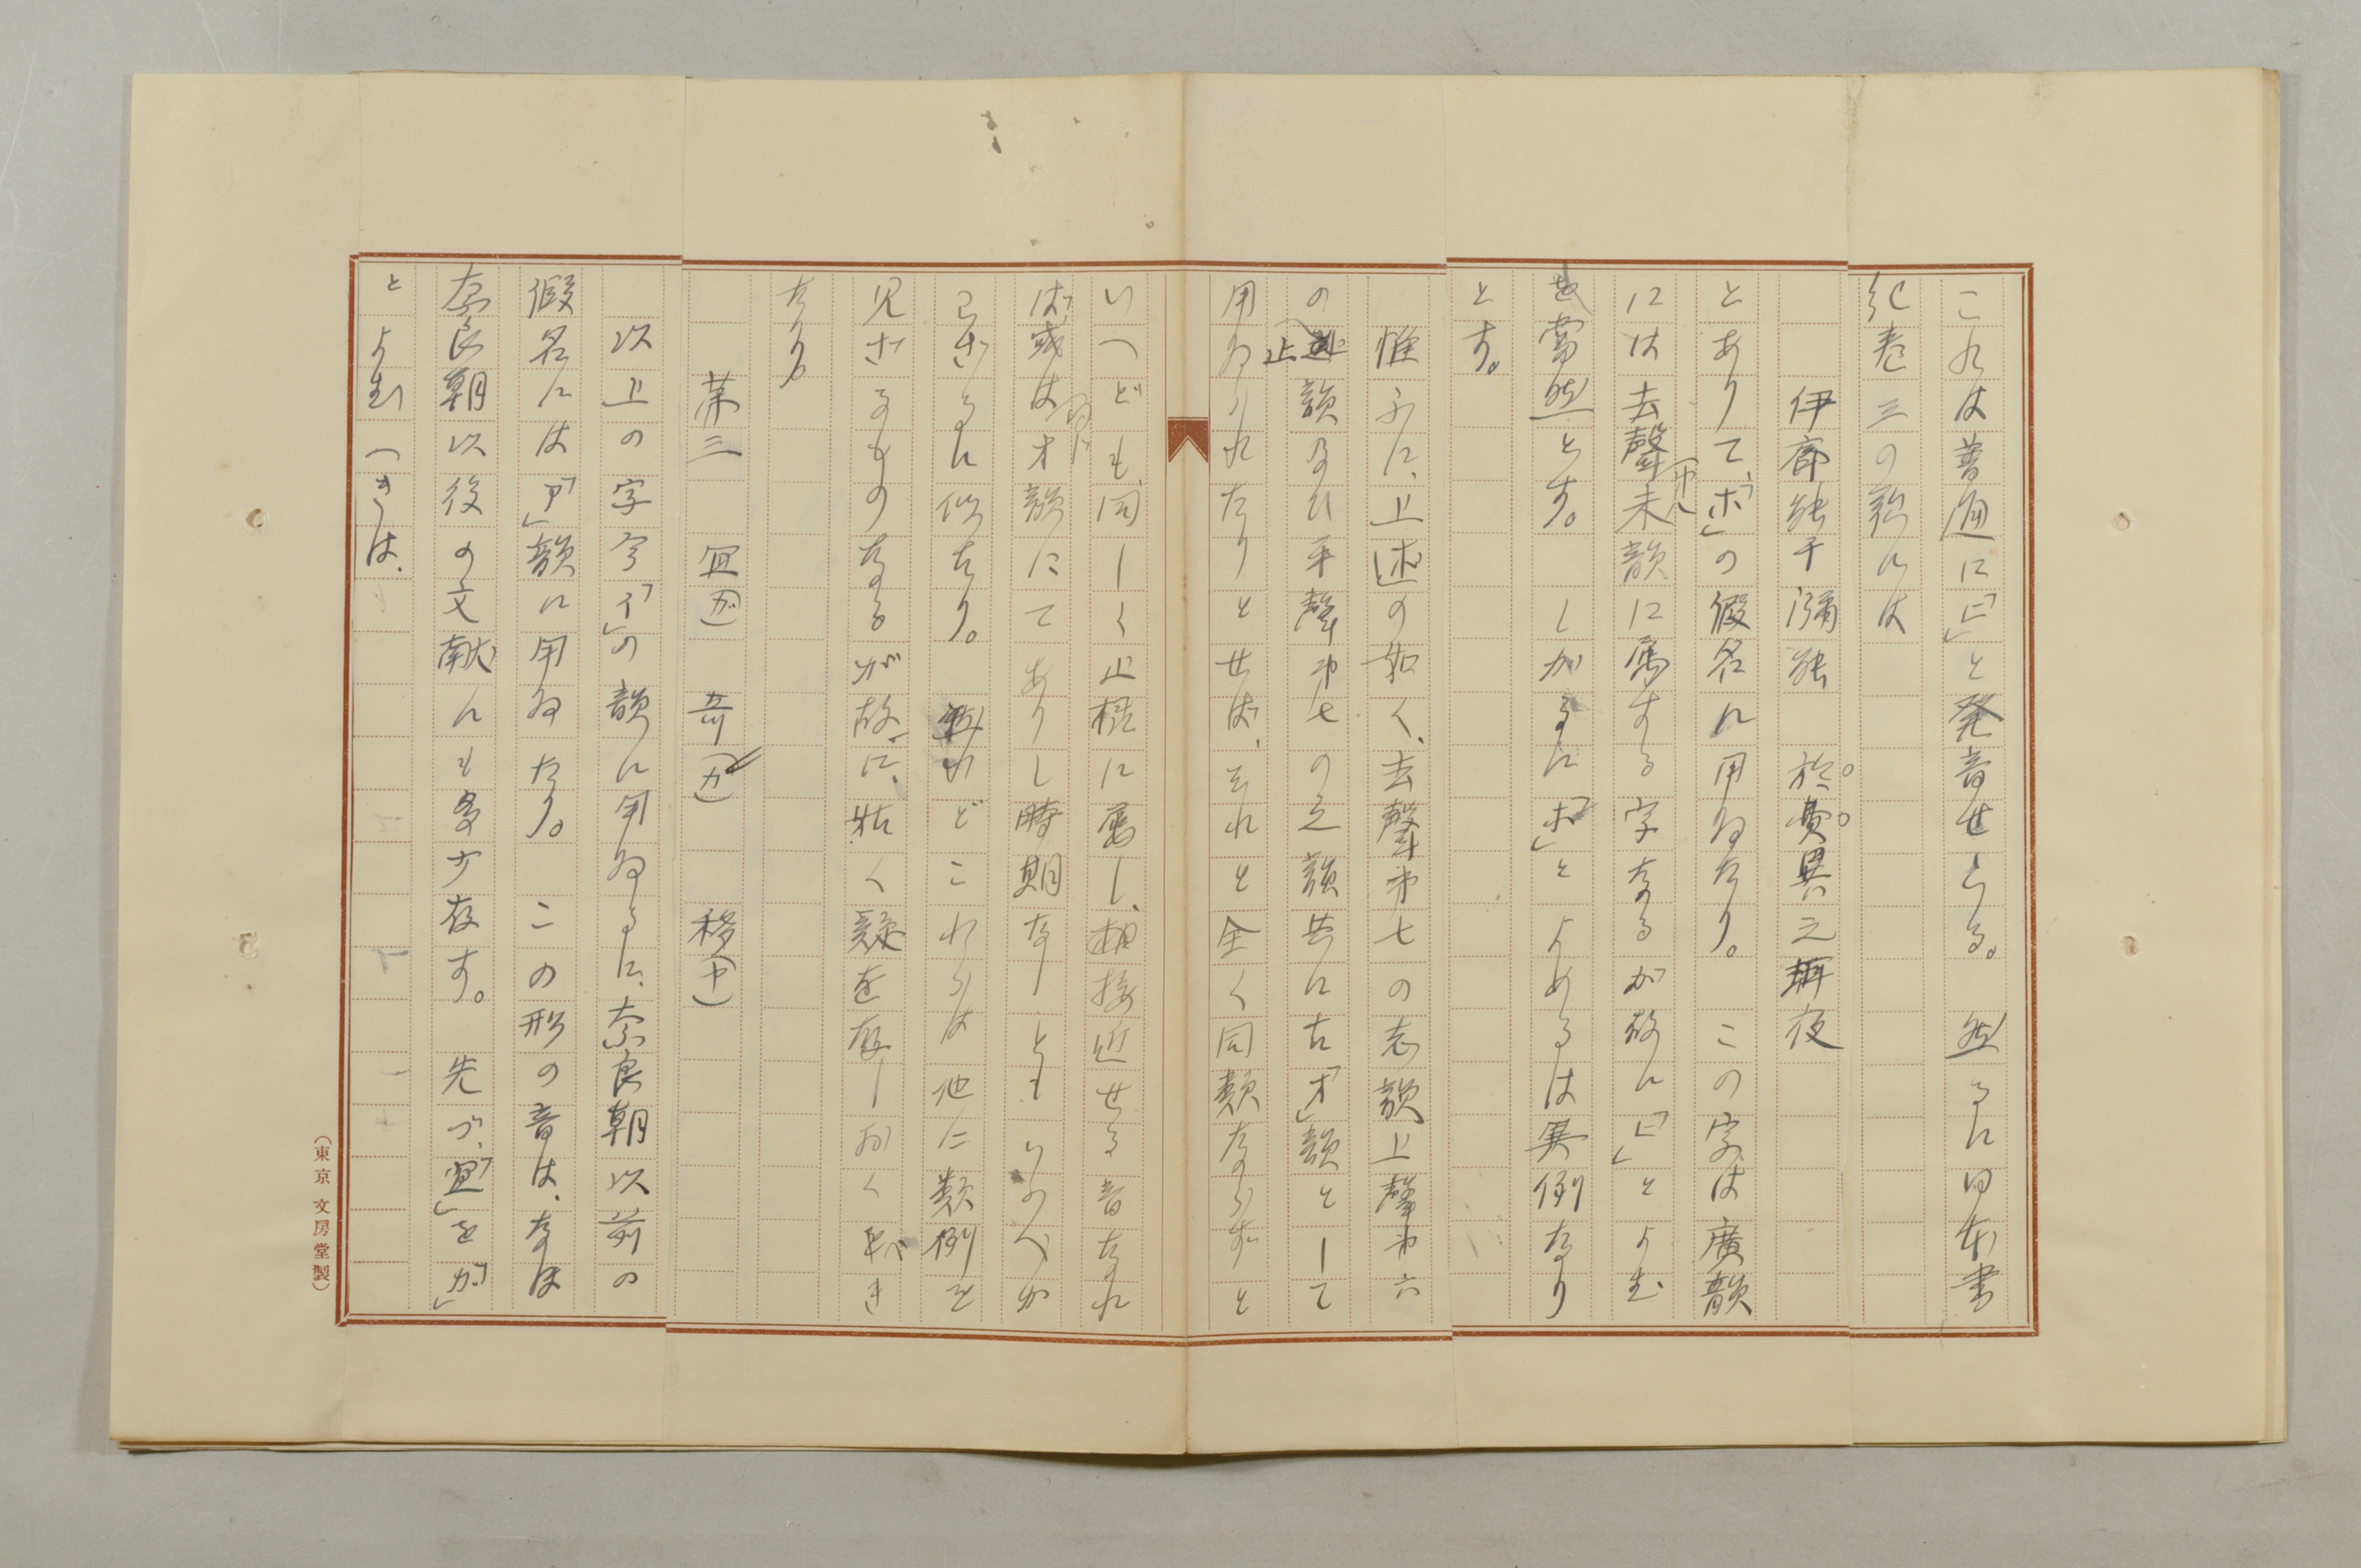 これは普通に「ヒ」と発音せらる。　然るに日本書
紀巻三の歌には
伊齋能千瀰能　於費異之珥夜
とありて、「ホ」の假名に用ゐたり。　この字は廣韻
には去聲未韻に属する字なるが故に「ヒ」とよむ
を當然とす。　しかるに「ホ」とよめるは異例なり
とす。
惟ふに、上述の如く、去聲第七の志韻上聲第六
の止韻及ひ平聲第七の之韻共に古「オ」韻として
用ゐられたりとせば、それと全く同類ならずと
いへども、同しく止攝に屬し、相接近せる音なれ
ば、或は オ韻にてありし時期なーともいふべか
らざるに似たり。　然れどこれらは他に類例を
見ざるものなるが故に、姑く疑を存しおくべき
なり。
第三　宜(ガ)　奇(カ)　移(ヤ)
以上の字今「イ」の韻に用ゐるに、奈良朝以前の
假名には「ア」韻に用ゐたり。　この形の音は、なほ
奈良朝以後の文献にも多少存す。　先づ、「宜」を「ガ」
とよむべきは、
（東京 文房堂製）